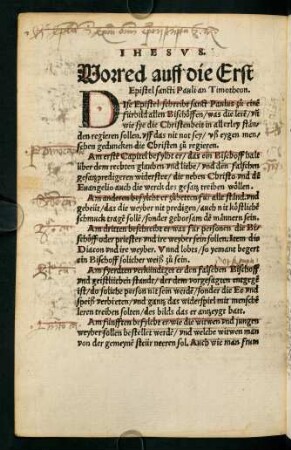 IHESVS.
Vorred auff die Erst
Epistel sancti Pauli an Timotheon.
DIse Epistel schreibt sanct Paulus zu einē
fürbild allen Bischöffen/ was sie leri/ vñ
wie sye die Christenheit in allerley stän/
den regieren sollen/ vff das nit not sey/ vß eygen men/
schen geduncken die Christen zu regieren.
Am erstē Capitel befylht er/ das ein Bischoff halt
über dem rechten glauben vnd liebe/ vnd den falschen
gesatzpredigeren widerstee/ die neben Christo vnd dē
Euangelio auch die werck des gesatz treiben wöllen.
Am anderen befylcht er gebetten für alle ständ/ vnd
gebeüt/ das die weyber nit predigen/ auch nit köstliche
schmuck tragē sollē/ sonder gehorsam dē männern sein.
Am dritten beschreibt er was für personen die Bi-
schöff oder priester/ vnd ire weyber sein sollen. Item die
Diacon vnd ire weyber. Vnd lobet/ so yemant begert
ein Bischoff solicher weiß zu sein.
Am fyerdten verkündiget er den falschen Bischoff
vnd geistlichen stande/ der dem vorgesagten entgegē
ist/ do soliche person nit sein werdē/ sonder die Ee vnd
speiß verbieten/ vnd gantz das widerspiel mit menschē
leren treiben solten/ des bilds das er anzeygt hatt.
Am fünfften befylcht er wie die witwen vnd jungen
weyber sollen bestellet werdē/ vnd welche witwen man
von der gemeynē steür neeren sol. Auch wie man frum